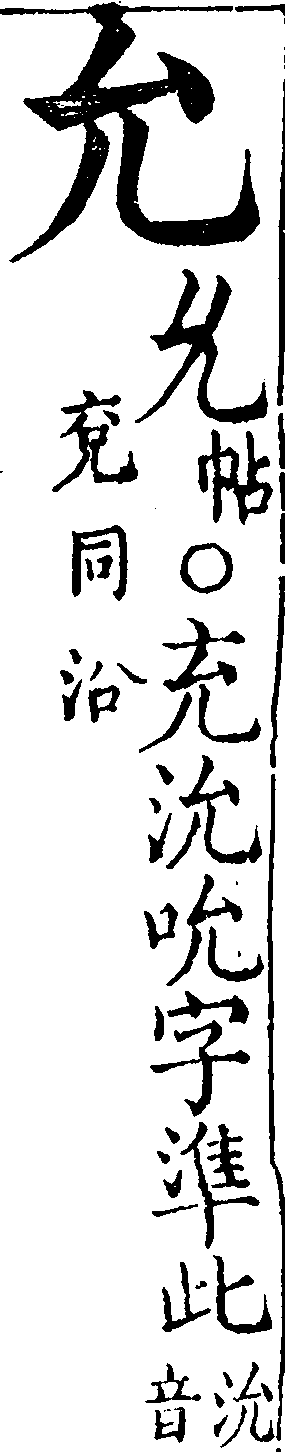 允
𠃔帖○充沇吮字準此沇音
兗同沿